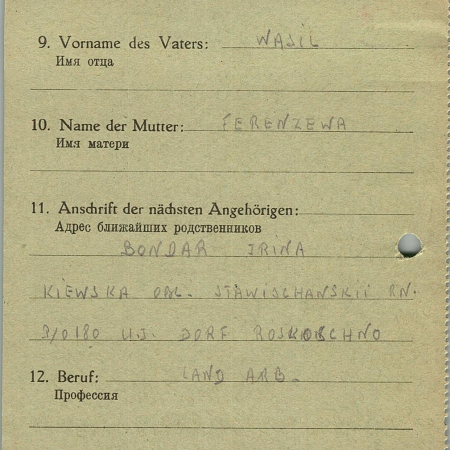 9. Vorname des Vaters: WASIL
Имя отца
10. Name der Mutter: FERENZEWA
Имя матери
11. Anschrift der nächsten Angehörigen:
Адрес ближайших родственников
BONDAR IRINA
KIEWSKA OBL. STAWISCHANSKII RN.
DORF
12. Beruf: LAND ARB.
Профессия